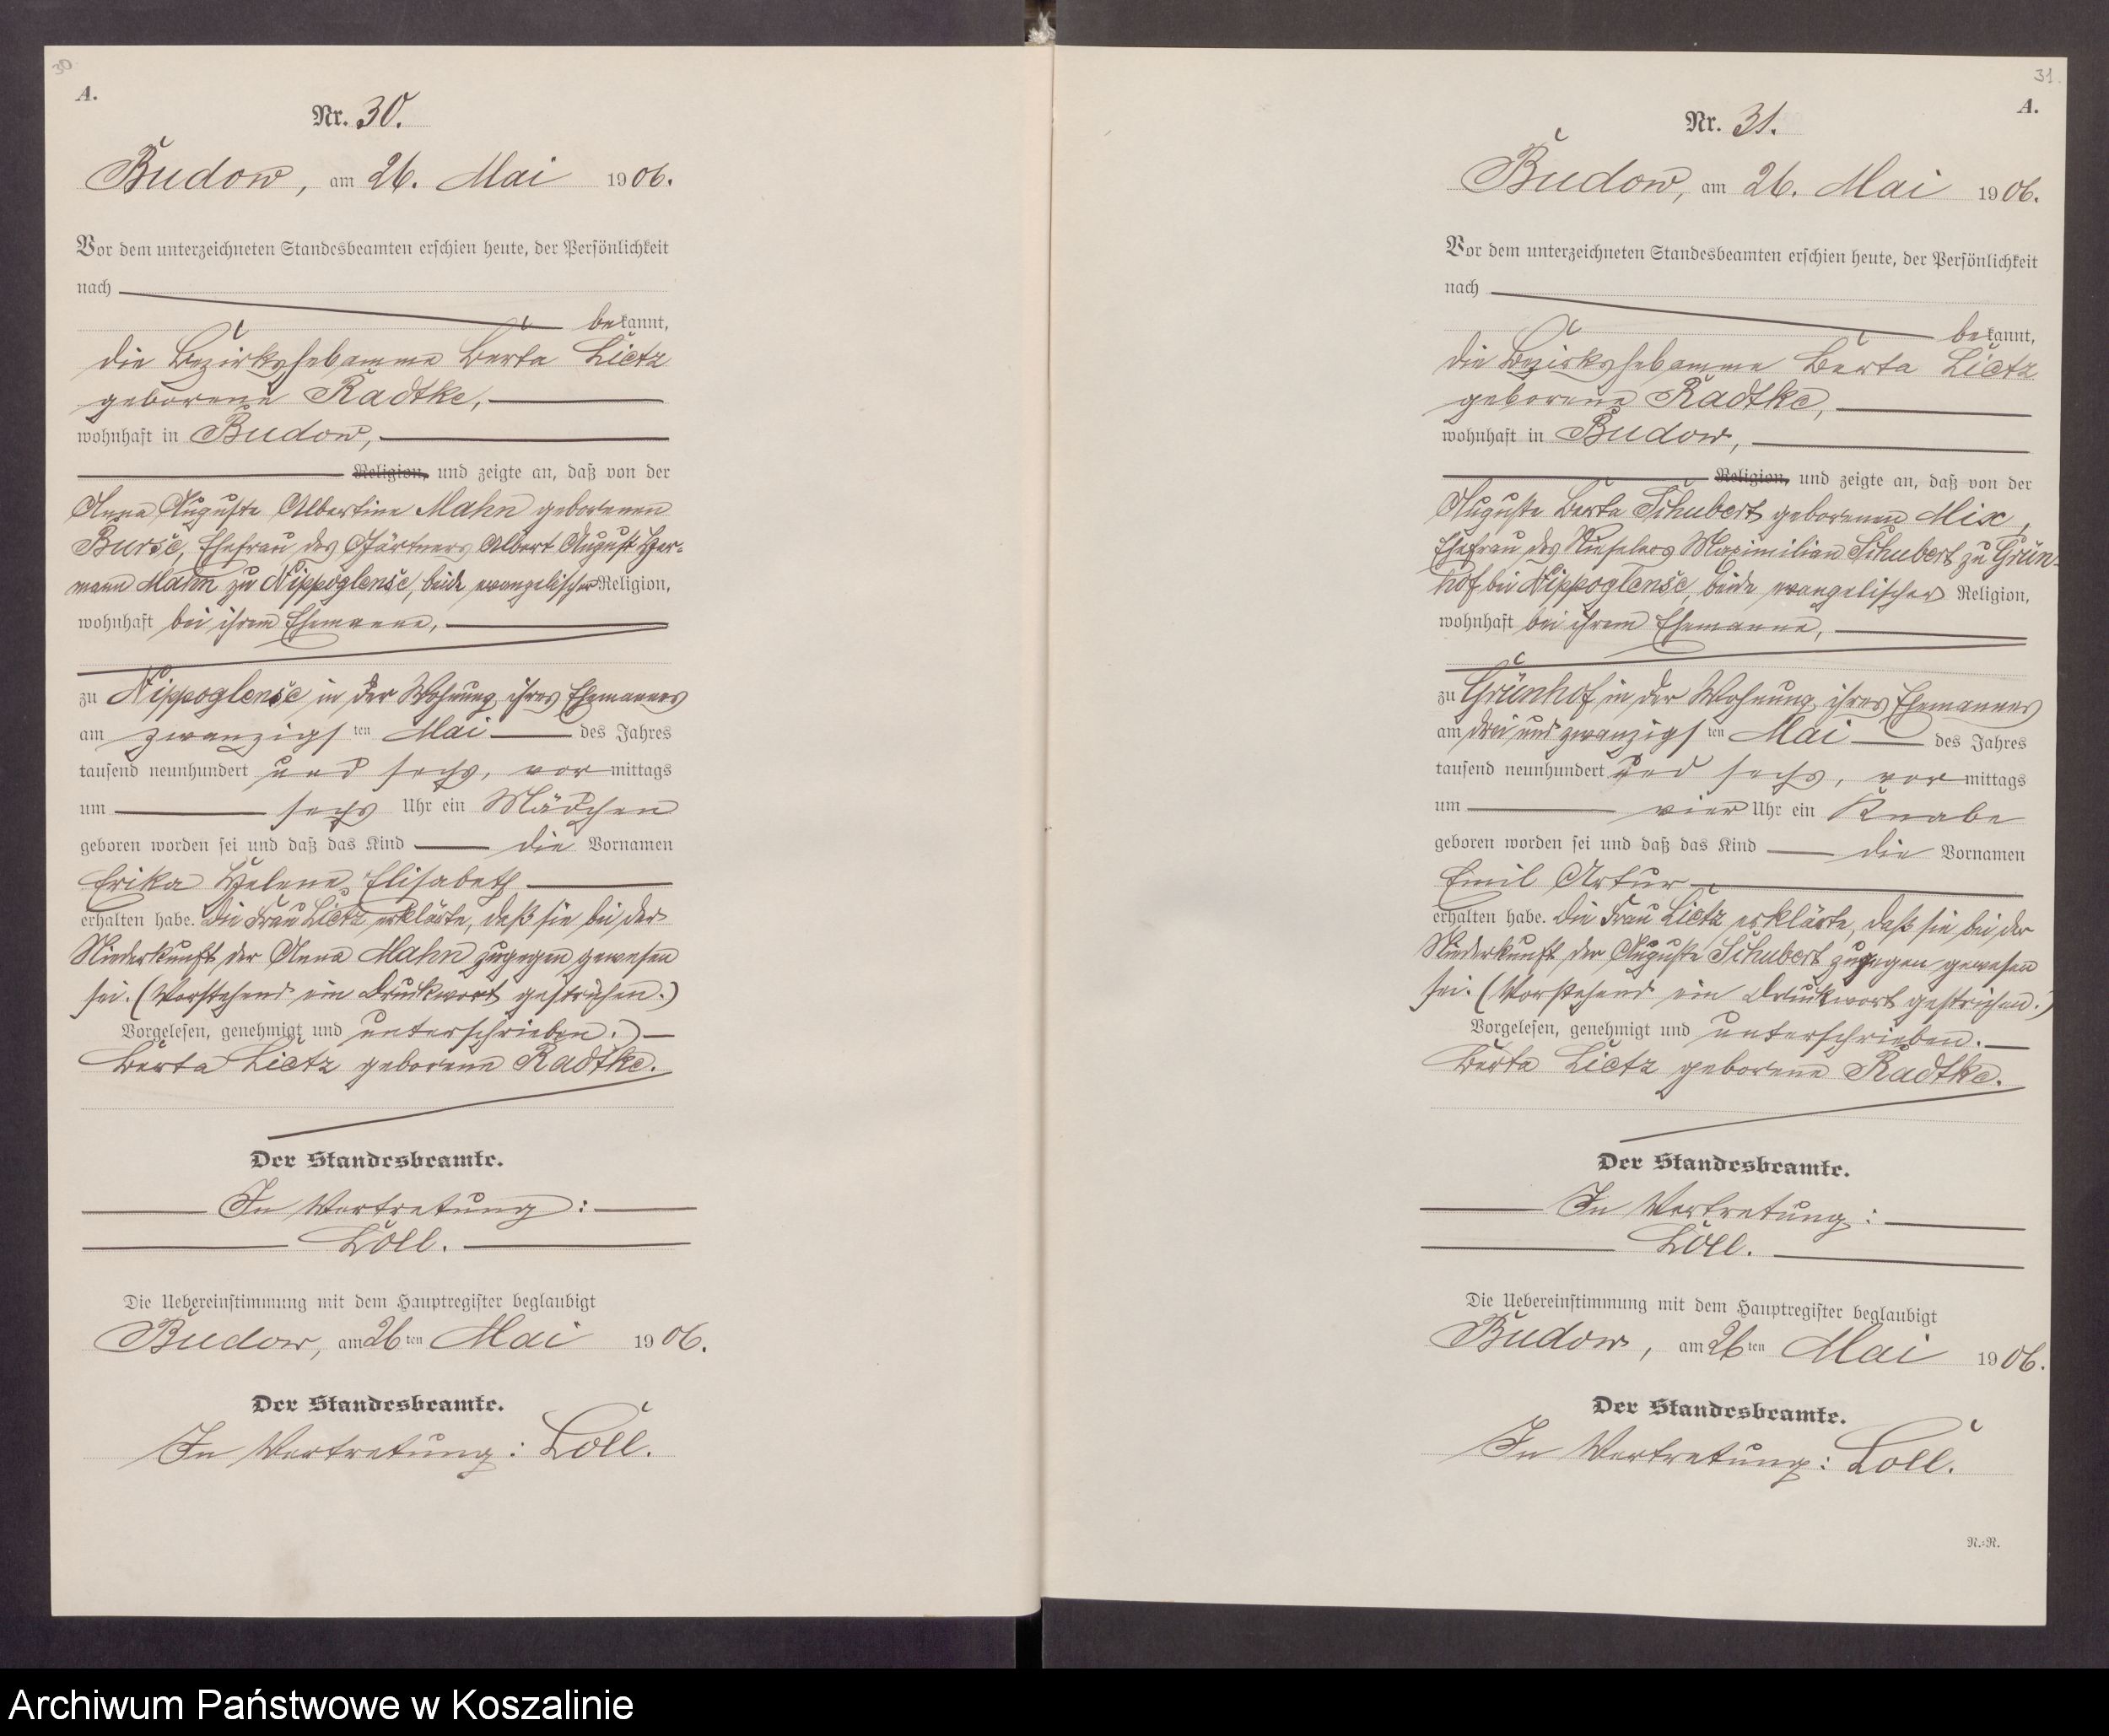 30
A.
Nr. 30.
Budow, am 26. Mai 1906.
Vor dem unterzeichneten Standesbeamten erschien heute, der Persönlichkeit
nach
bekannt,
die Bezirkshebamme Berta Lietz
geborene Radtke,
wohnhaft in Budow,
Religion, und zeigte an, daß von der
Anna Auguste Albertine Mahn geborenen
Burse, Ehefrau des Gärtners Albert August Her-
mann Mahn zu Nippoglense, beide evangelischer Religion,
wohnhaft bei ihrem Ehemanne,
zu Nippoglense in der Wohnung ihres Ehemannes
am zwanzigsten Mai des Jahres
tausend neunhundert und sechs, vormittags
um sechs Uhr ein Mädchen
geboren worden sei und daß das Kind die Vornamen
Erika Helene Elisabeth
erhalten habe. Die Frau Lietz erklärte, daß sie bei der
Niederkunft der Anna Mahn zugegen gewesen
sei. (Vorstehend ein Druckwort gestrichen.)
Vorgelesen, genehmigt und unterschrieben.)
Berta Lietz geborene Radtke.
Der Standesbeamte.
In Vertretung:
Löll.
Die Uebereinstimmung mit dem Hauptregister beglaubigt
Budow, am 26ten Mai 1906.
Der Standesbeamte.
In Vertretung: Löll.
31.
A.
Nr. 31.
Budow, am 26. Mai 1906.
Vor dem unterzeichneten Standesbeamten erschien heute, der Persönlichkeit
nach
bekannt,
die Bezirkshebamme Berta Lietz
geborene Radtke,
wohnhaft in Budow,
Religion, und zeigte an, daß von der
Auguste Berta Schubert geborenen Mix,
Ehefrau des Maximilian Schubert zu Grün-
hof bei Nippoglense, beide evangelischer Religion,
wohnhaft bei ihrem Ehemanne,
zu Grünhof in der Wohnung ihres Ehemannes
am drei und zwanzigsten Mai des Jahres
tausend neunhundert und sechs, vormittags
um vier Uhr ein Knabe
geboren worden sei und daß das Kind die Vornamen
Emil Artur
erhalten habe. Die Frau Lietz erklärte, daß sie bei der
Niederkunft der Auguste Schubert zugegen gewesen
sei. (Vorstehend ein Druckwort gestrichen.)
Vorgelesen, genehmigt und unterschrieben.
Berta Lietz geborene Radtke.
Der Standesbeamte.
In Vertretung:
Löll.
Die Uebereinstimmung mit dem Hauptregister beglaubigt
Budow, am 26ten Mai 1906.
Der Standesbeamte.
In Vertretung: Löll.
N.-N.
Archiwum Państwowe w Koszalinie